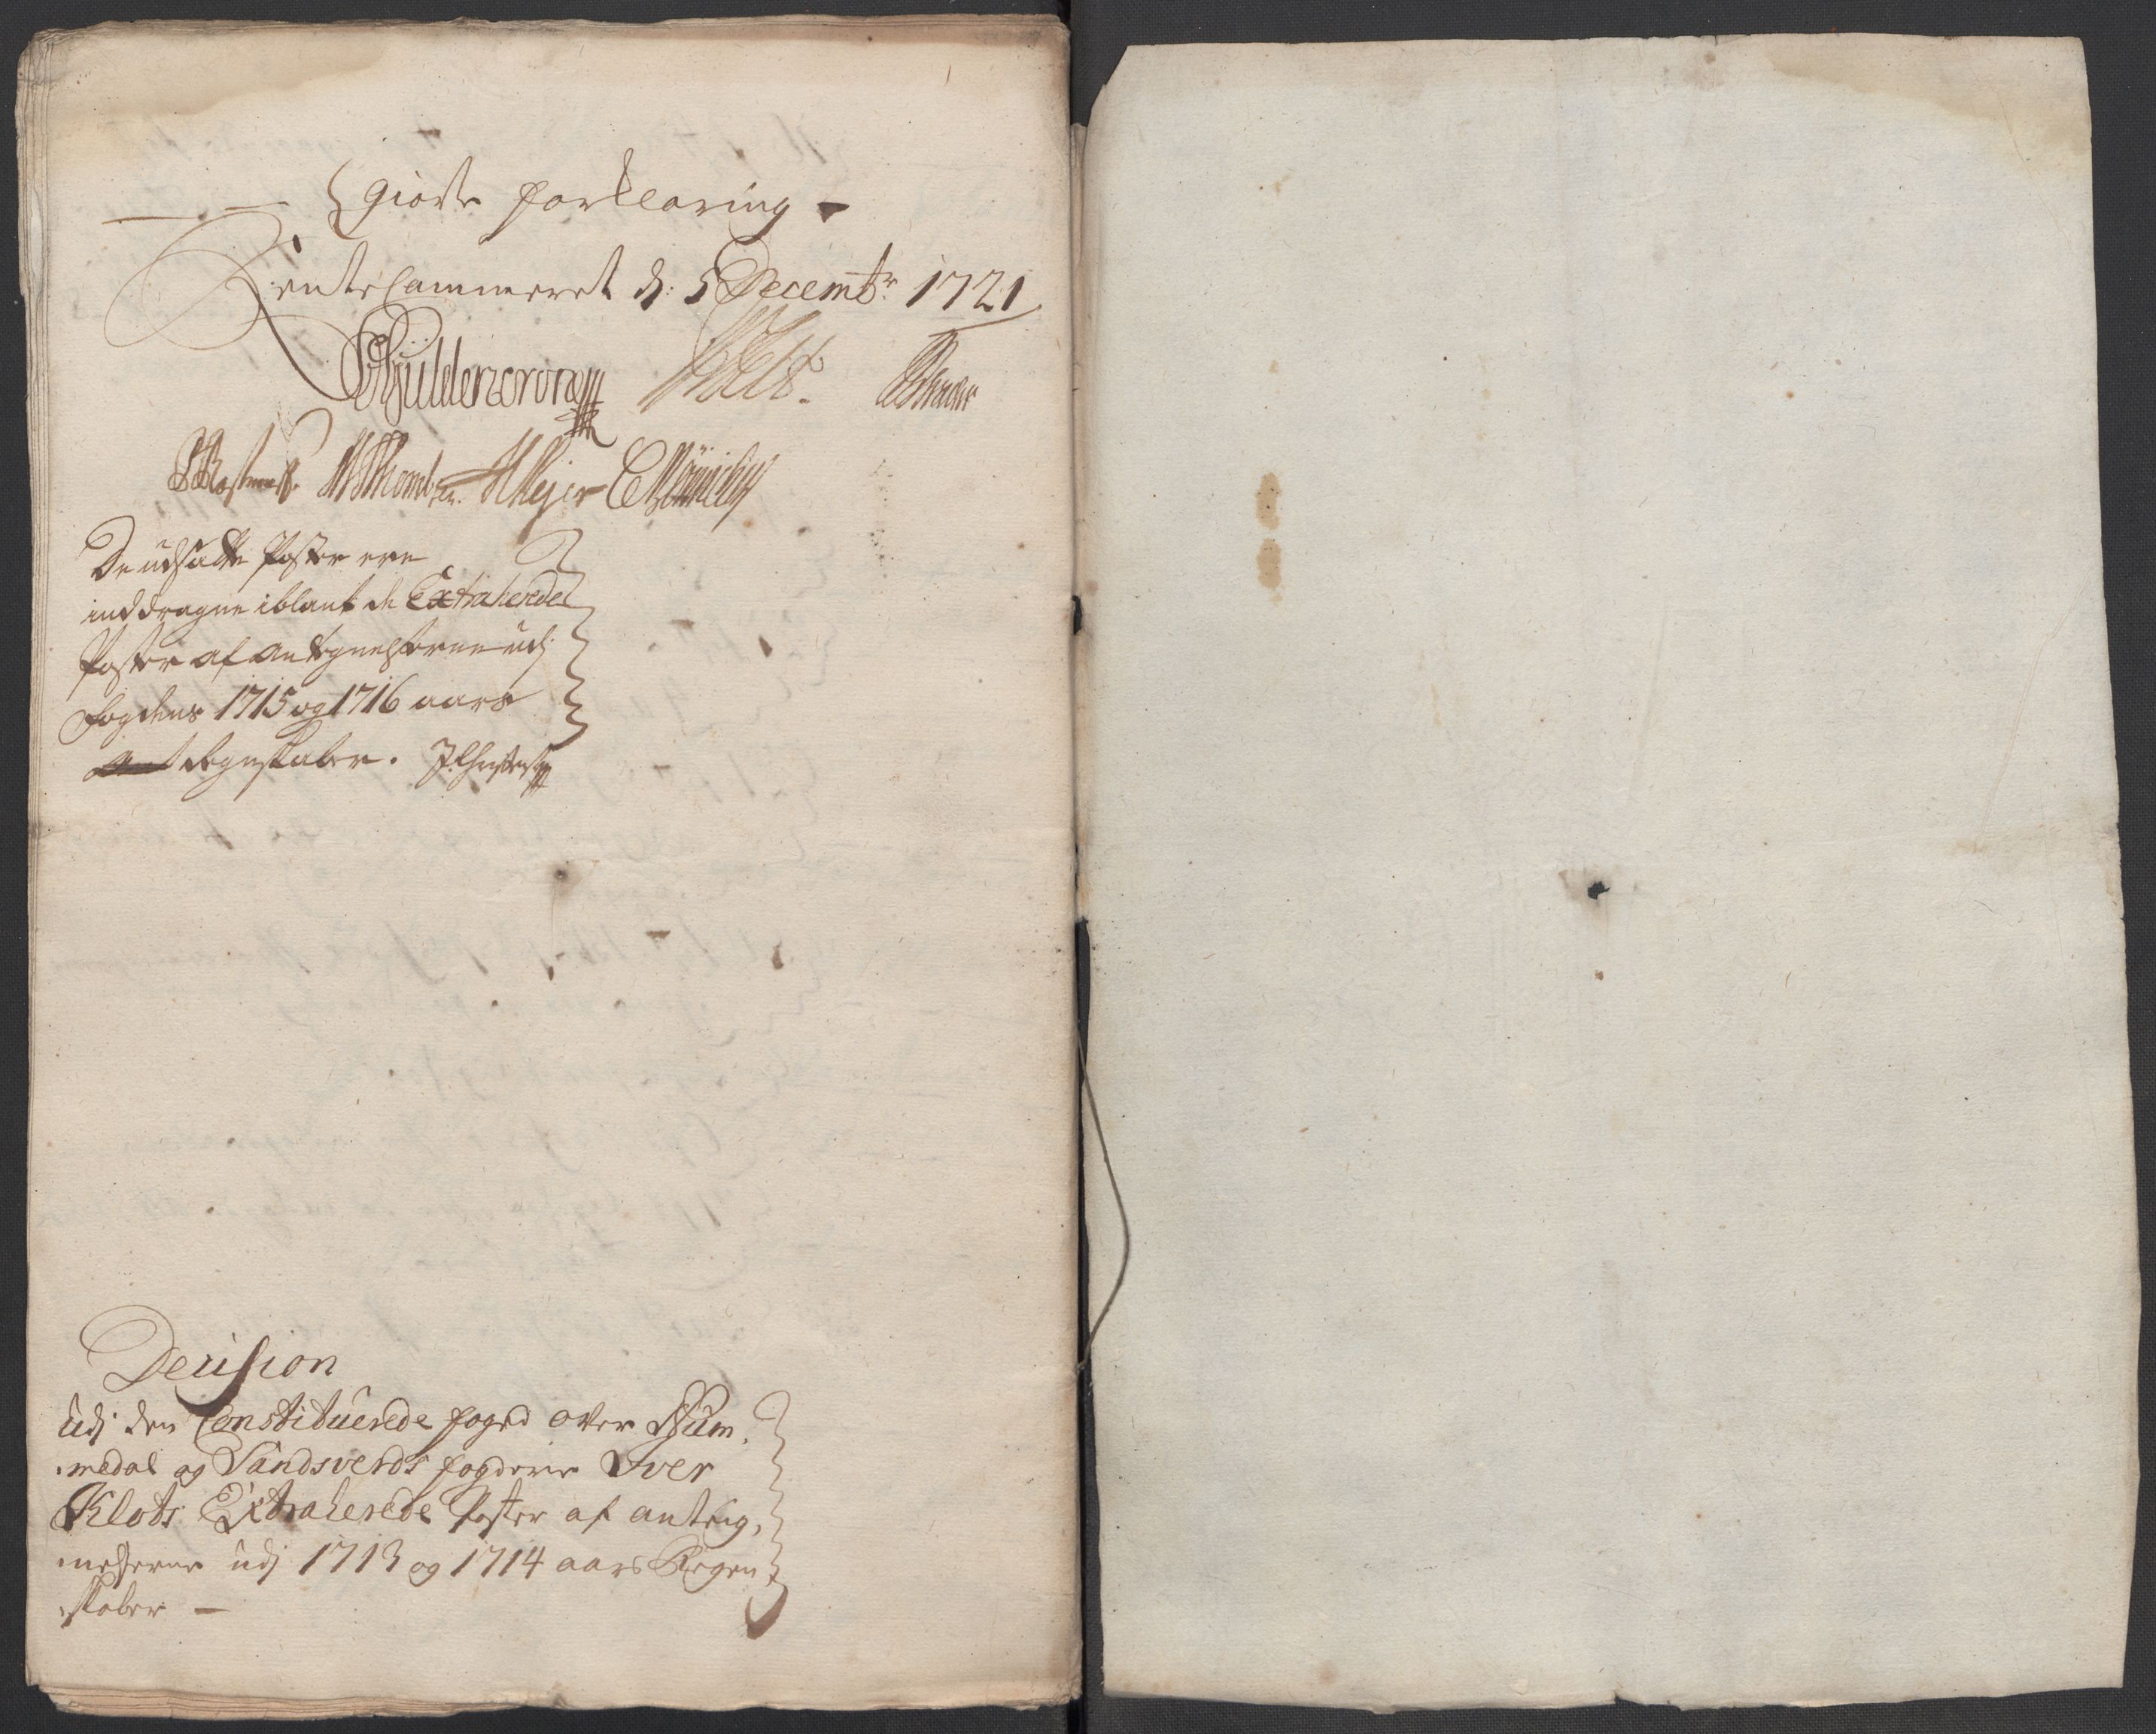 giorte forklaring -
Rentecammeret d: 5 Decembr: 1721
Guldencrone
De udsatte Poster ere
inddragne iblant de Extraherede
Poster af antegnelserne udj
fogdens 1715 og 1716 aars
Regnskaber.
Decision
udj den Constituerede foged over Num,
medal og Sandsverds fogderie Iver
Klots Extraherede Poster af anteig,
nelserne udj 1713 og 1714 aars Regen,
skaber -